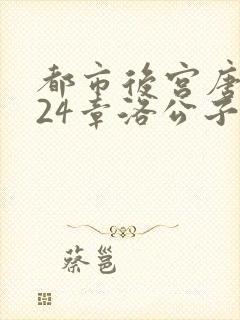 都市后宫唐
24章洛公子
蔡邕